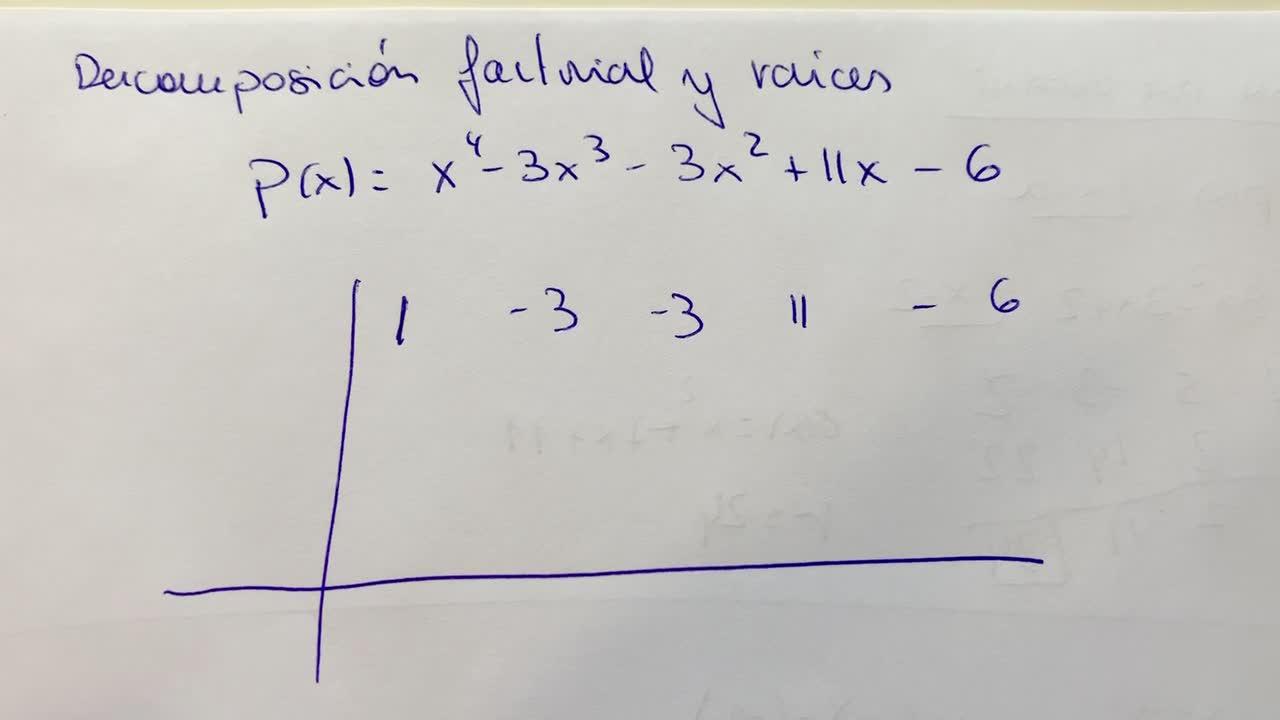 Descomposición factorial y raices
P(x) = x⁴ - 3x³ - 3x² + 11x - 6
1 -3 -3 11 - 6